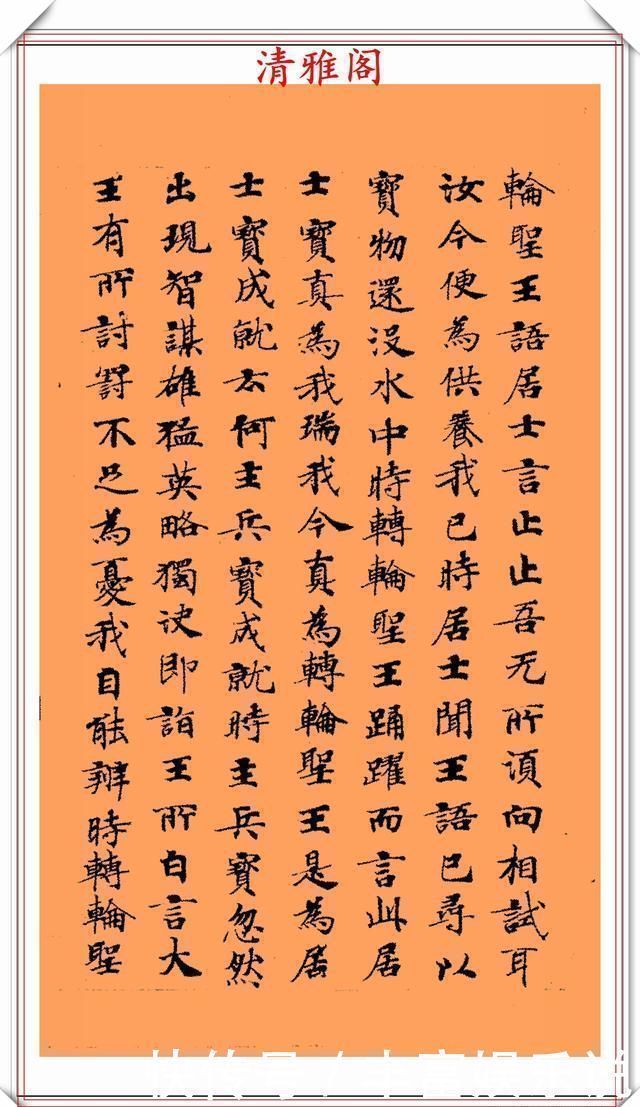 清雅阁
輪聖王語居士言止止吾无所須向相試耳
汝今便為供養我已時居士聞王語已尋以
寶物還沒水中時轉輪聖王踊躍而言此居
士寶真為我瑞我今真為轉輪聖王是為居
士寶成就云何主兵寶成就時主兵寶忽然
出現智謀雄猛英略獨決即詣王所白言大
王有所討罸不足為憂我自能辦時轉輪聖